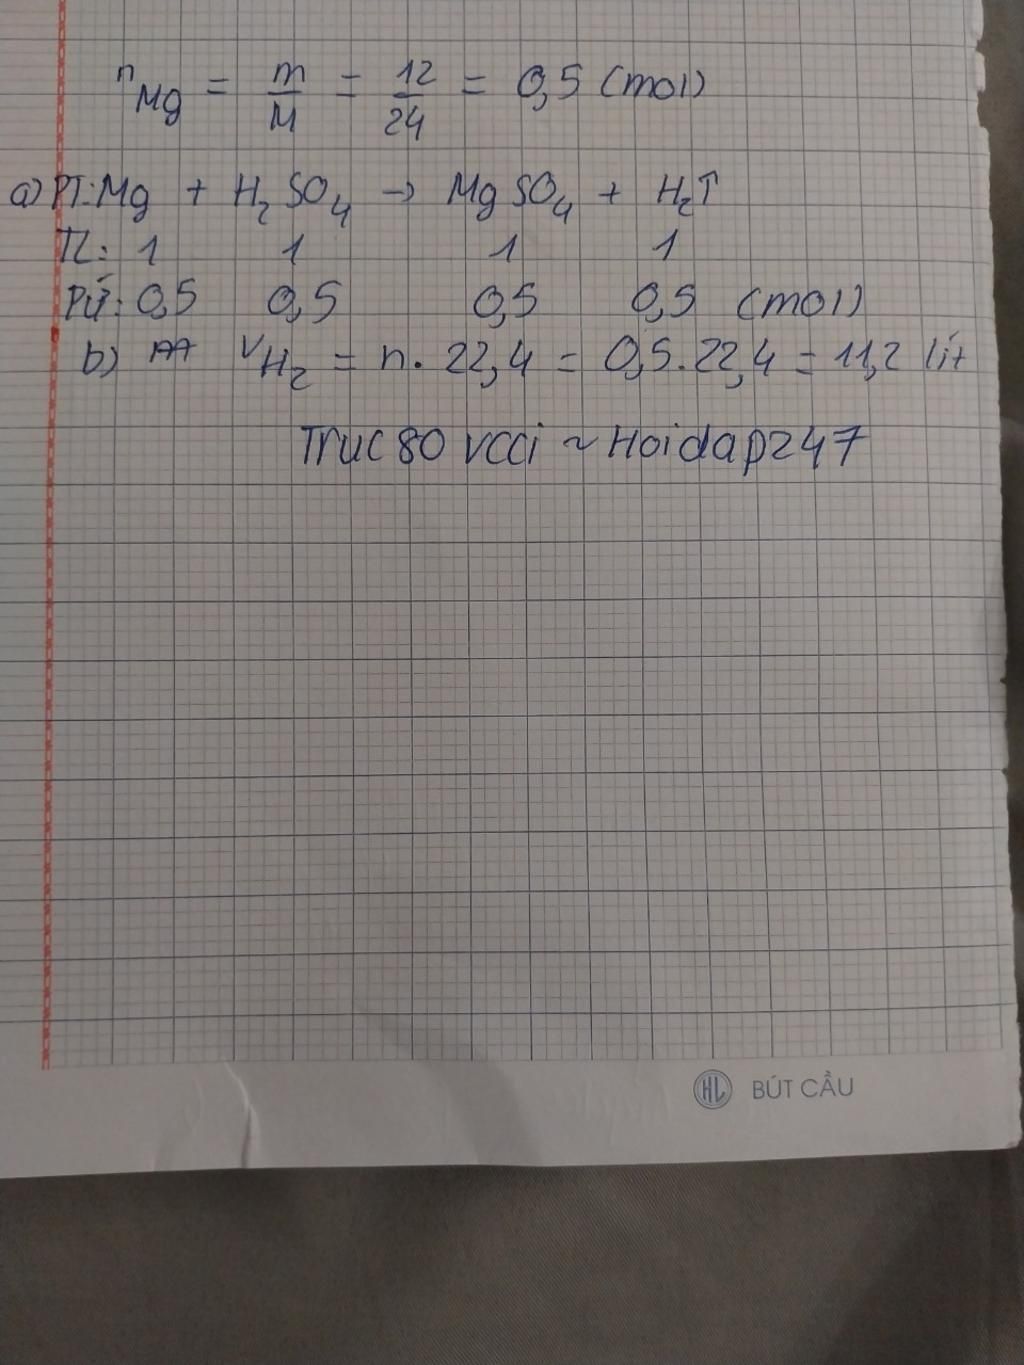 nMg = m/M = 12/24 = 0,5 (mol)
a) PT: Mg + H2SO4 → MgSO4 + H2↑
TL: 1 1 1 1
PỨ: 0,5 0,5 0,5 0,5 (mol)
b) VH2 = n. 22,4 = 0,5.22,4 = 11,2 lít
Truc80 vcci ~ Hoidap247
HL BÚT CẦU